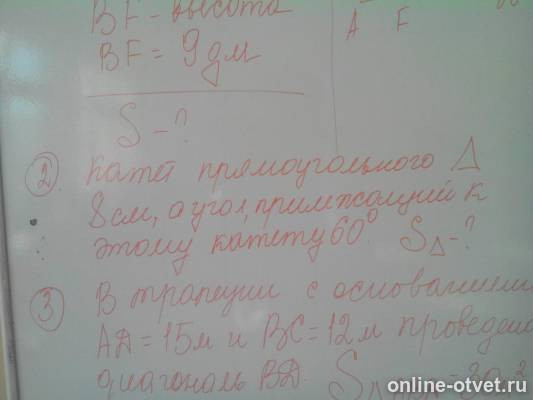 BF - высота
BF = 9 дм
A F
S - ?
2. Катет прямоугольного Δ
8 см, а угол, прилежащий к
этому катету 60°. SΔ - ?
3 В трапеции с основаниями
AD = 15 м и BC = 12 м проведена
диагональ BD.
online-otvet.ru